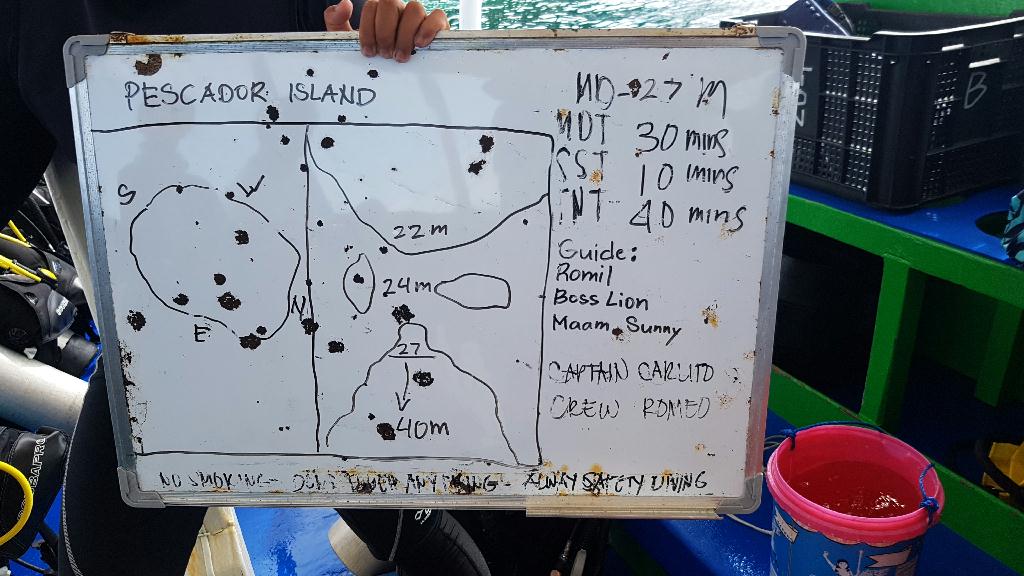 PESCADOR ISLAND
S
W
E
N
22m
24m
27
40m
MD-27 M
MDT 30 mins
SST 10 mins
TNT 40 mins
Guide:
Romil
Boss Lion
Maam Sunny
CAPTAIN CARLITO
CREW ROMEO
NO SMOKING - DON'T TOUCH ANYTHING - ALWAY SAFETY DIVING
B